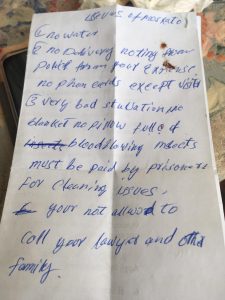 issues of moskato
① no water
② no Delivery noting from
Police form your Expense
no phon cards except visits
③ very bad situation no
blanket no pillow full of
bloodflowing insects
must be paid by prisoners
For cleaning issues.
your not allwod to
call your lawyer and other
family